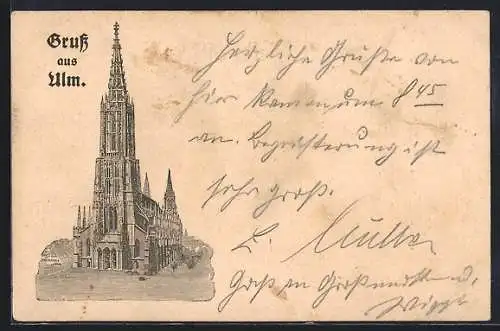 Gruß
aus
Ulm.
Herzliche Grüße von
hier kamen um 8 45
an. Begeisterung ist
sehr groß.
E. Müller
Gruß an Großmutter u.